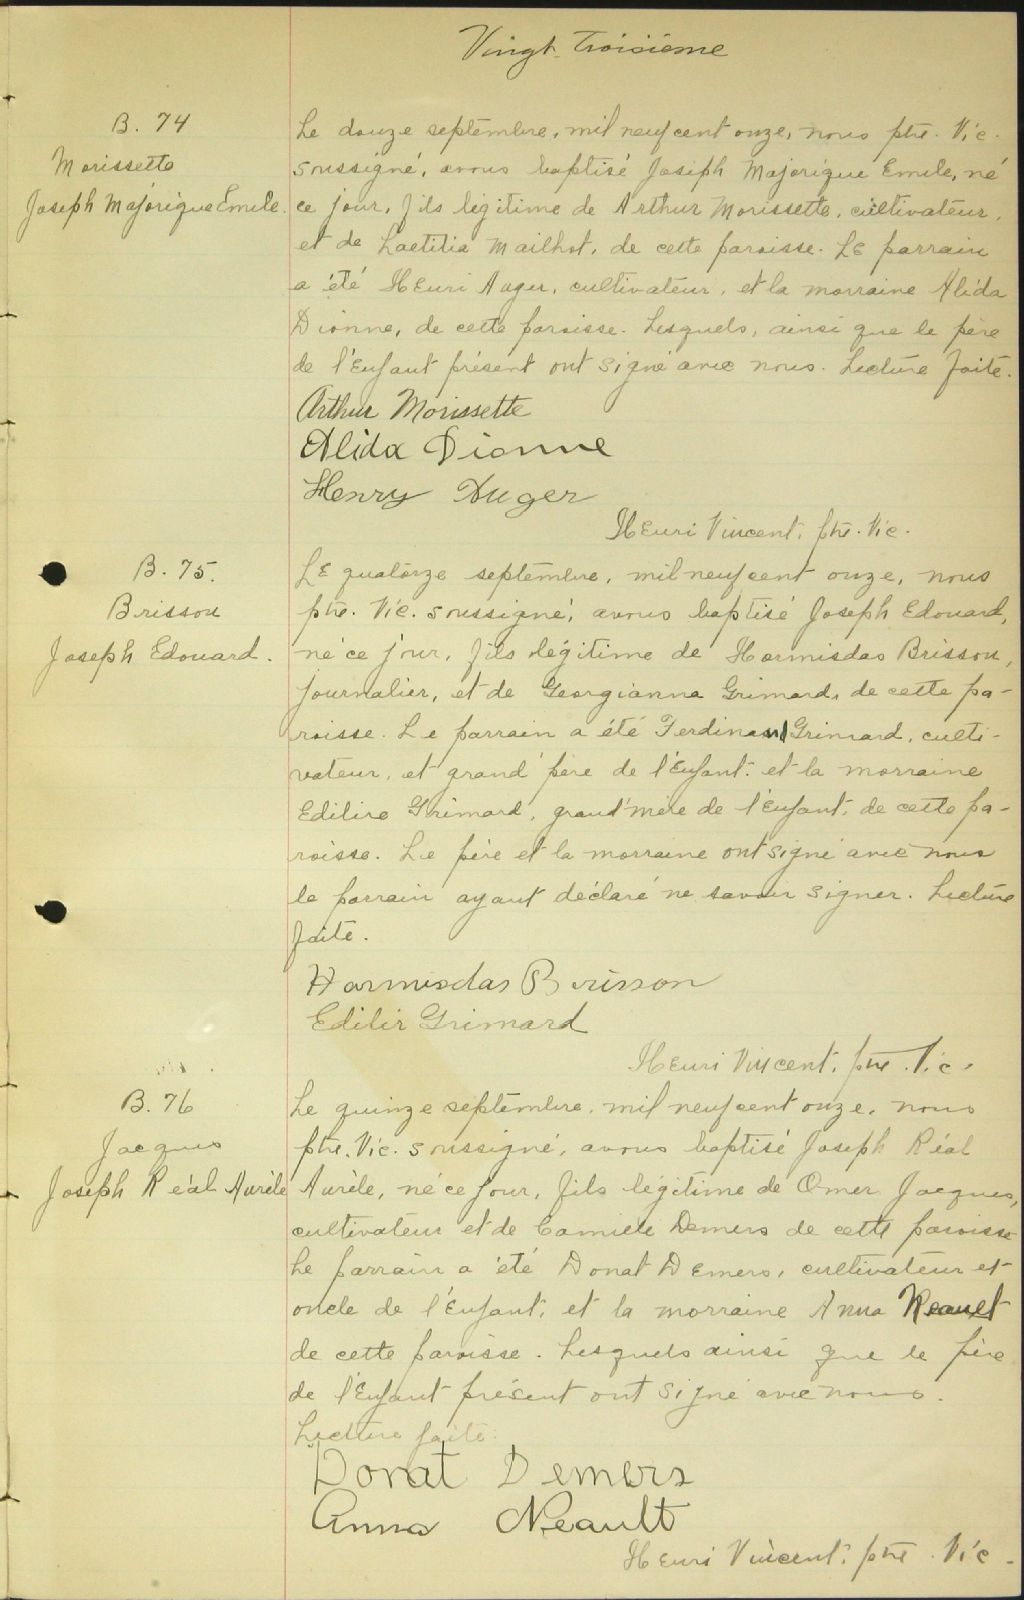 Vingt-troisième
B. 74
Morissette
Joseph Majorique Emile.
Le douze septembre, mil neuf cent onze, nous ptre. Vic.
soussigné, avons baptisé Joseph Majorique Emile, né
ce jour, fils légitime de Arthur Morissette, cultivateur,
et de Laetitia Mailhot, de cette paroisse. Le parrain
a été Henri Auger, cultivateur, et la marraine Alida
Dionne, de cette paroisse. Lesquels, ainsi que le père
de l'Enfant présent ont signé avec nous. Lecture faite.
Arthur Morissette
Alida Dionne
Henry Auger
Henri Vincent, ptre. Vic.
B. 75.
Brisson
Joseph Edouard.
Le quatorze septembre, mil neuf cent onze, nous
ptre. Vic. soussigné, avons baptisé Joseph Edouard,
né ce jour, fils légitime de Hormisdas Brisson,
journalier, et de Georgianna Grimard, de cette pa-
roisse. Le parrain a été Ferdinand Grimard, culti-
vateur, et grand'père de l'Enfant. et la marraine
Edilire Grimard, grand'mère de l'Enfant, de cette pa-
roisse. Le père et la marraine ont signé avec nous
le parrain ayant déclaré ne savoir signer. Lecture
faite.
Hormisdas Brisson
Edilir Grimard
Henri Vincent, ptre. Vic.
B. 76
Jacques
Joseph Réal Aurèle
Le quinze septembre, mil neuf cent onze, nous
ptre. Vic. soussigné, avons baptisé Joseph Réal
Aurèle, né ce jour, fils légitime de Omer Jacques,
cultivateur et de Camiele Demers de cette paroisse
Le parrain a été Donat Demers, cultivateur et
oncle de l'Enfant, et la marraine Anna Neault
de cette paroisse. Lesquels ainsi que le père
de l'Enfant présent ont signé avec nous.
Lecture faite.
Donat Demers
Anna Neault
Henri Vincent, ptre. Vic.